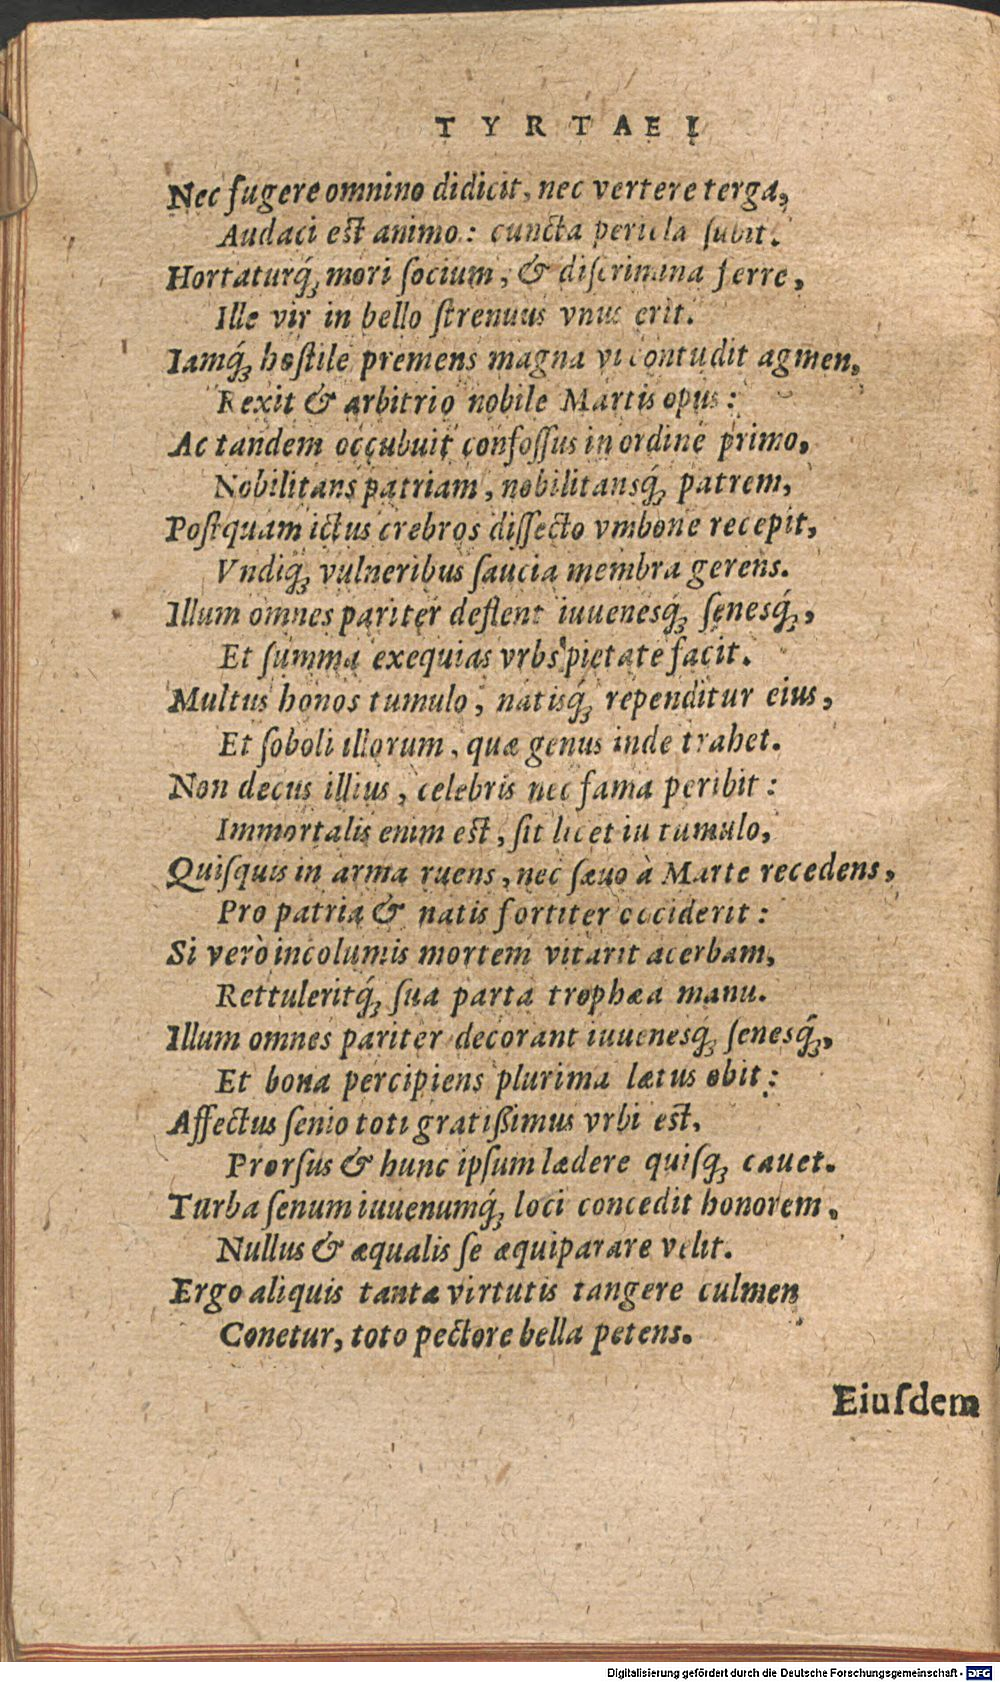 TYRTAEI
Nec fugere omnino didicit, nec vertere terga,
Audaci est animo: cuncta pericula ſubit.
Hortaturq́ꝫ mori ſocium, & diſcrimina ferre,
Ille vir in bello ſtrenuus vnus erit.
Iamq́ꝫ hoſtile premens magna vi contudit agmen,
Rexit & arbitrio nobile Martis opus:
Ac tandem occubuit confoſſus in ordine primo,
Nobilitans patriam, nobilitansq́ꝫ patrem,
Poſtquam ictus crebros diſſecto vmbone recepit,
Vndiq́ꝫ vulneribus ſaucia membra gerens.
Illum omnes pariter deflent iuuenesq́ꝫ ſenesq́ꝫ,
Et ſumma exequias vrbs pietate facit.
Multus honos tumulo, natisq́ꝫ rependitur eius,
Et ſoboli illorum, quæ genus inde trahet.
Non decus illius, celebris nec fama peribit:
Immortalis enim est, ſit licet in tumulo,
Quiſquis in arma ruens, nec ſæuo à Marte recedens,
Pro patria & natis fortiter occiderit:
Si verò incolumis mortem vitarit acerbam,
Rettuleritq́ꝫ ſua parta trophæa manu.
Illum omnes pariter decorant iuuenesq́ꝫ ſenesq́ꝫ,
Et bona percipiens plurima lætus obit:
Affectus ſenio toti gratißimus vrbi est,
Prorſus & hunc ipſum lædere quiſqꝫ cauet.
Turba ſenum iuuenumq́ꝫ loci concedit honorem,
Nullus & æqualis ſe æquiparare velit.
Ergo aliquis tantæ virtutis tangere culmen
Conetur, toto pectore bella petens.
Eiuſdem
Digitalisierung gefördert durch die Deutsche Forschungsgemeinschaft - DFG